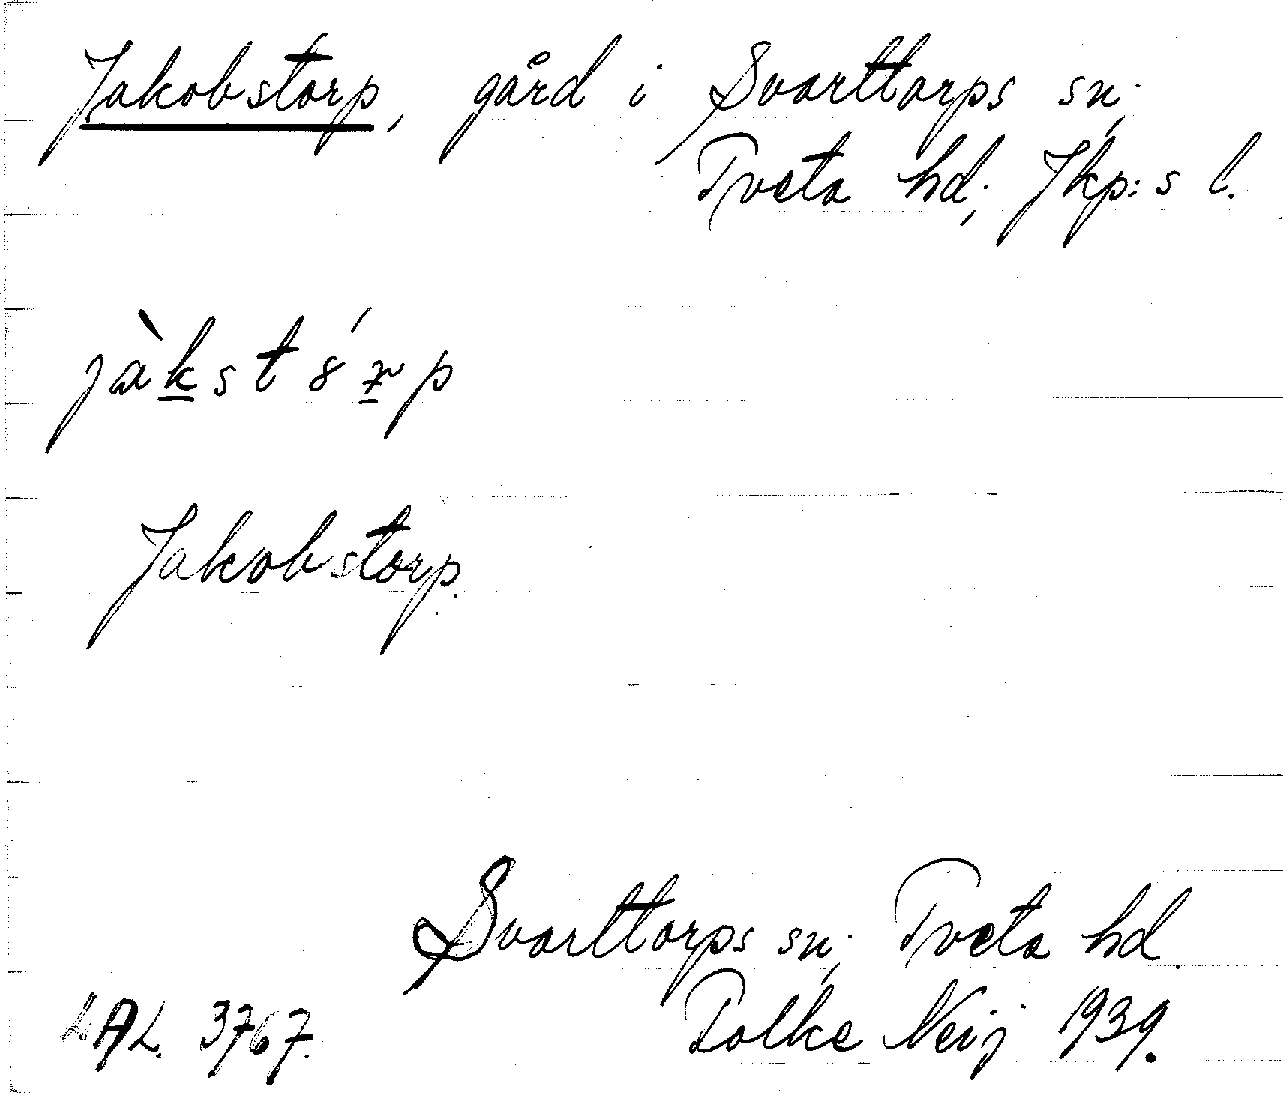 Jakobstorp, gård i Svarttorps sn;
Tveta hd; Jkp:s l.
Jakobstorp.
Svarttorps sn; Tveta hd.
Folke Neij 1939.
LAL. 3767.